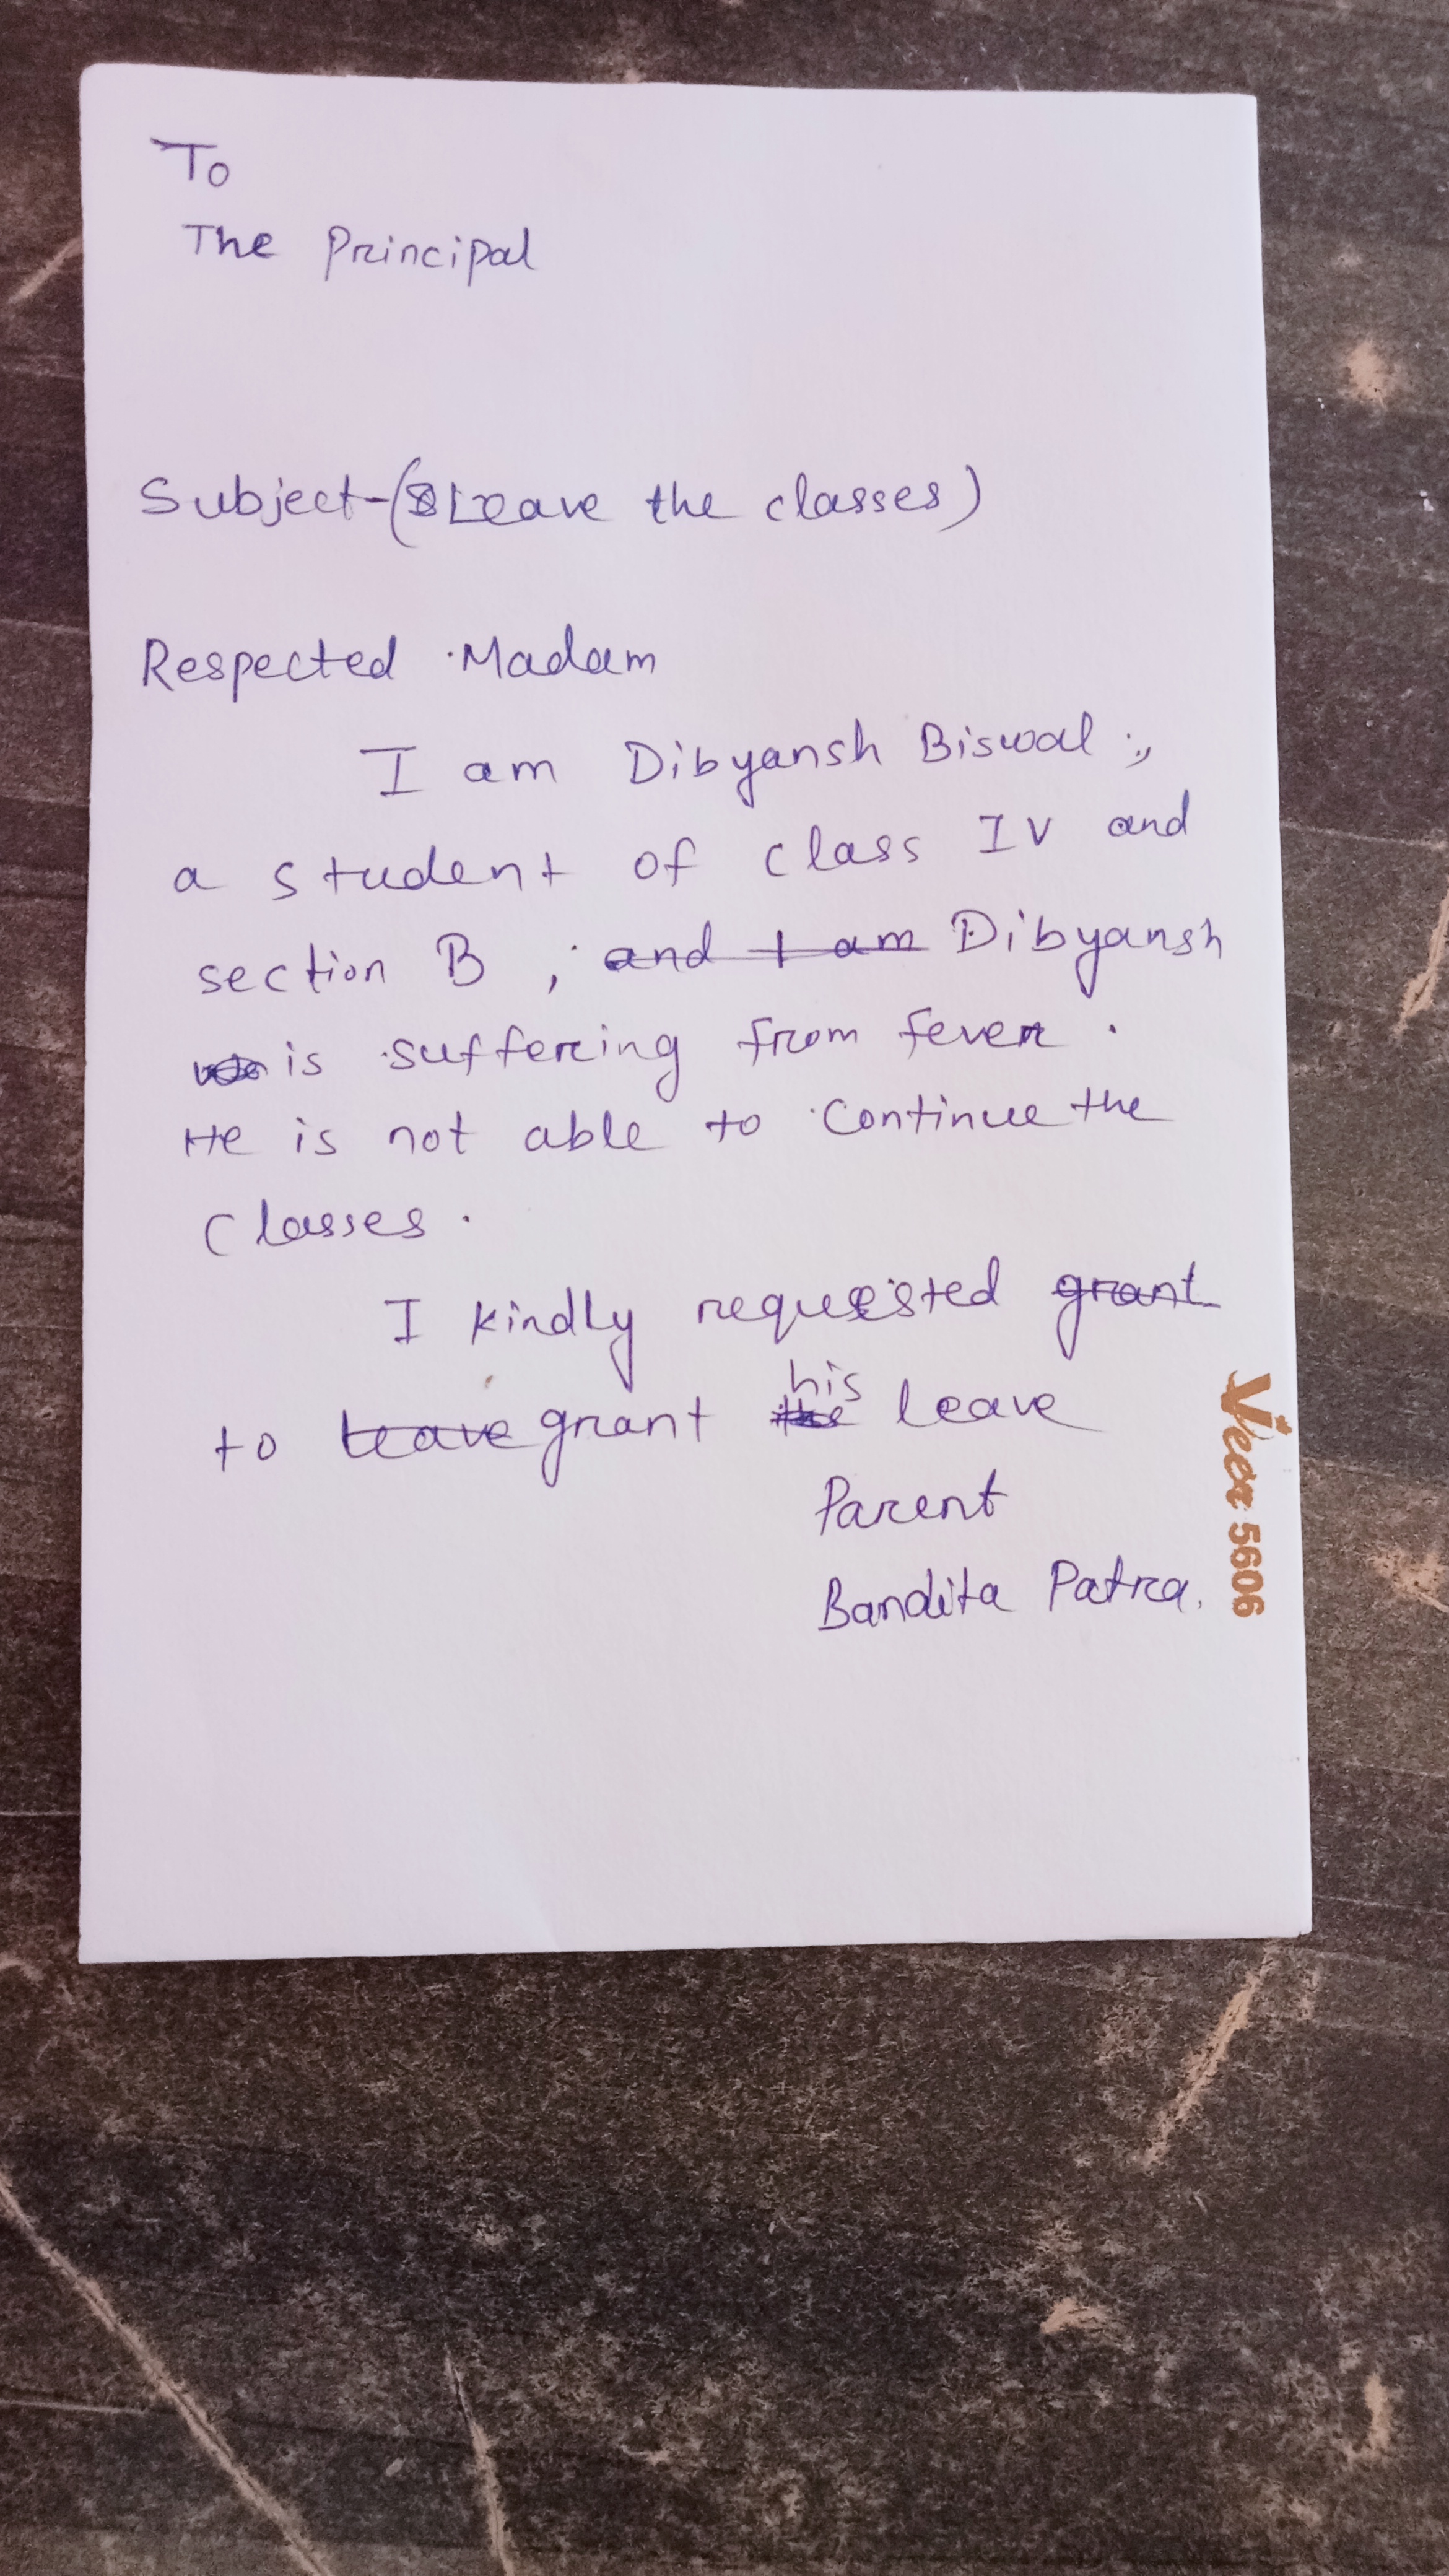 To
The Principal
Subject-(Leave the classes)
Respected Madam
I am Dibyansh Biswal,
a student of class IV and
section B, and I am Dibyansh
is suffering from fever.
He is not able to continue the
classes.
I kindly requested grant
to leave grant the his leave
Parent
Bandita Patra.
5606